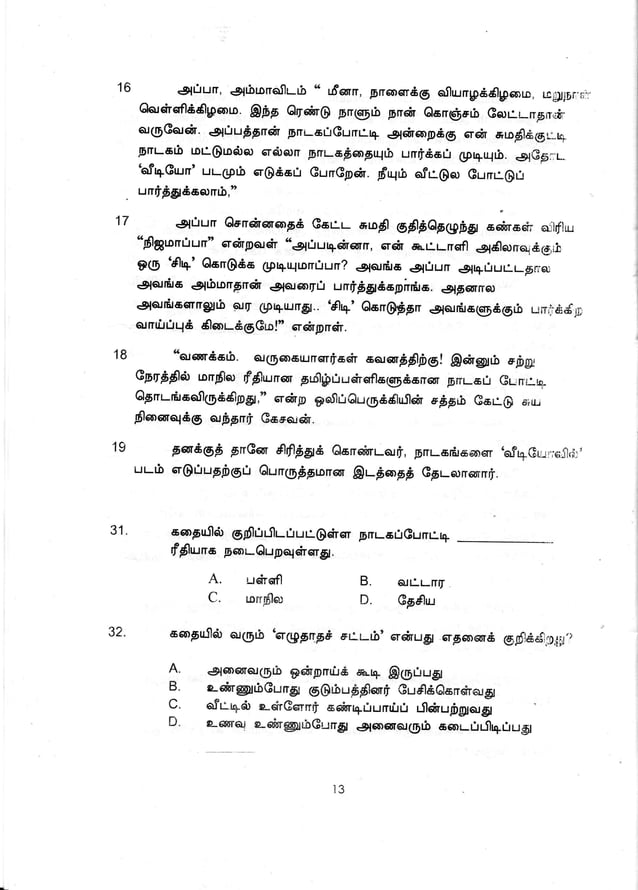 16 அப்பா, அம்மாவிடம் “ மீனா, நாளைக்கு வியாழக்கிழமை, மறுநாள்
வெள்ளிக்கிழமை. இந்த ரெண்டு நாளும் நான் கொஞ்சம் லேட்டாதான்
வருவேன். அப்பத்தான் நாடகப்போட்டி அன்றைக்கு என் சுமதிக்குட்டி
நாடகம் மட்டுமல்ல எல்லா நாடகத்தையும் பார்க்கப் முடியும். அதோட
‘வீடியோ’ படமும் எடுக்கப் போறேன். நீயும் வீட்டுல போட்டுப்
பார்த்துக்கலாம்,”
17 அப்பா சொன்னதைக் கேட்ட சுமதி குதித்தெழுந்து கண்கள் விரிய
“நிஜமாப்பா” என்றவள் “அப்படின்னா, என் கூட்டாளி அகிலாவுக்கும்
ஒரு ‘சிடி’ கொடுக்க முடியுமாப்பா? அவங்க அப்பா அடிப்பட்டதால
அவங்க அம்மாதான் அவரைப் பார்த்துக்கறாங்க. அதனால
அவங்களாலும் வர முடியாது.. ‘சிடி’ கொடுத்தா அவங்களுக்கும் பார்க்கிற
வாய்ப்புக் கிடைக்குமே!” என்றாள்.
18 “வணக்கம். வருகையாளர்கள் கவனத்திற்கு! இன்னும் சற்று
நேரத்தில் மாநில ரீதியான தமிழ்ப்பள்ளிகளுக்கான நாடகப் போட்டி
தொடங்கவிருக்கிறது,” என்ற ஒலிப்பெருக்கியின் சத்தம் கேட்டு சுய
நினைவுக்கு வந்தார் கேசவன்.
19 தனக்குத் தானே சிரித்துக் கொண்டவர், நாடகங்களை ‘வீடியோவில்’
படம் எடுப்பதற்குப் பொருத்தமான இடத்தைத் தேடலானார்.
31. கதையில் குறிப்பிடப்பட்டுள்ள நாடகப்போட்டி ______________
ரீதியாக நடைபெறவுள்ளது.
A. பள்ளி B. வட்டார
C. மாநில D. தேசிய
32. கதையில் வரும் ‘எழுதாதச் சட்டம்’ என்பது எதனைக் குறிக்கிறது?
A. அனைவரும் ஒன்றாய்க் கூடி இருப்பது
B. உண்ணும்போது குடும்பத்தினர் பேசிக்கொள்வது
C. வீட்டில் உள்ளோர் கண்டிப்பாய்ப் பின்பற்றுவது
D. உணவு உண்ணும்போது அனைவரும் கடைப்பிடிப்பது
13